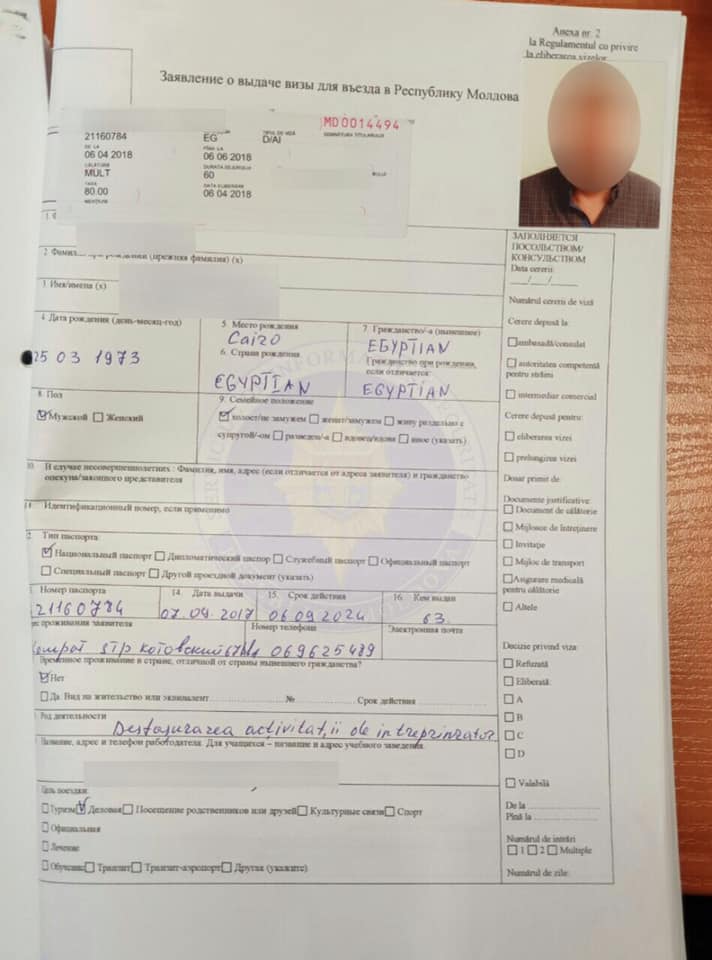 Anexa nr. 2
la Regulamentul cu privire
la eliberarea vizelor
Заявление о выдаче визы для въезда в Республику Молдова
MD0014494
21160784
EG
TIPUL DE VIZĂ
D/AI
SEMNĂTURA TITULARULUI
DE LA
06 04 2018
PÎNĂ LA
06 06 2018
CĂLĂTORII
MULT
DURATA SEJURULUI
60
TAXA
80.00
DATA ELIBERĂRII
06 04 2018
MENȚIUNI
1. Ф
2. Фамил при рождении (прежняя фамилия) (x)
3. Имя/имена (x)
4. Дата рождения (день-месяц-год)
25 03 1973
5. Место рождения
Cairo
6. Страна рождения
EGYPTIAN
7. Гражданство/-а (нынешнее)
EGYPTIAN
Гражданство при рождении,
если отличается:
EGYPTIAN
8. Пол
Мужской Женский
9. Семейное положение
холост/не замужем женат/замужем живу раздельно с
супругой/-ом разведен/-а вдовец/вдова иное (указать)
10. В случае несовершеннолетних : Фамилия, имя, адрес (если отличается от адреса заявителя) и гражданство
опекуна/законного представителя
11. Идентификационный номер, если применимо
2. Тип паспорта:
Национальный паспорт Дипломатический паспорт Служебный паспорт Официальный паспорт
Специальный паспорт Другой проездной документ (указать)
Номер паспорта
21160784
14. Дата выдачи
07.09.2017
15. Срок действия
06.09.2024
16. Кем выдан
63.
проживания заявителя
Номер телефона
069625489
Электронная почта
Временное проживание в стране, отличной от страны нынешнего гражданства?
Нет
Да. Вид на жительство или эквивалент № Срок действия
Род деятельности
Desfasurarea activitatii de intreprinzator
Название, адрес и телефон работодателя. Для учащихся – название и адрес учебного заведения.
Цель поездки:
Туризм Деловая Посещение родственников или друзей Культурные связи Спорт
Официальная
Лечение
Обучение Транзит Транзит-аэропорт Другая (укажите)
ЗАПОЛНЯЕТСЯ
ПОСОЛЬСТВОМ/
КОНСУЛЬСТВОМ
Data cererii:
Numărul cererii de viză
Cerere depusă la:
ambasadă/consulat
autoritatea competentă
pentru străini
intermediar comercial
Cerere depusă pentru:
eliberarea vizei
prelungirea vizei
Dosar primit de:
Documente justificative:
Document de călătorie
Mijloace de întreținere
Invitație
Mijloc de transport
Asigurare medicală
pentru călătorie
Altele
Decizie privind viza:
Refuzată
Eliberată:
A
B
C
D
Valabilă
De la
Pînă la
Numărul de intrări
1 2 Multiple
Numărul de zile: